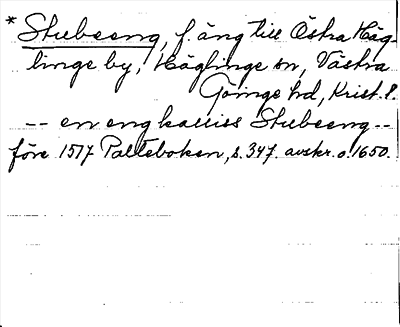 * Stubeeng, f. äng till Östra Häg-
linge by, Häglinge sn, Västra
Göinge hd, Krist. l.
-- en eng kaliiss Stubeeng --
före 1517 Palteboken, s. 347. avskr. o. 1650.